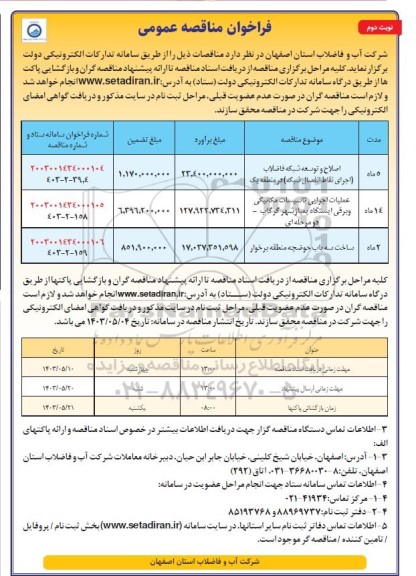 نوبت دوم
فراخوان مناقصه عمومی
شرکت آب و فاضلاب استان اصفهان در نظر دارد مناقصات ذیل را از طریق سامانه تدارکات الکترونیکی دولت
برگزار نماید. کلیه مراحل برگزاری مناقصه از دریافت اسناد مناقصه تا ارائه پیشنهاد مناقصه گران و بازگشایی پاکت
ها از طریق درگاه سامانه تدارکات الکترونیکی دولت (ستاد) به آدرس: www.setadiran.ir انجام خواهد شد
و لازم است مناقصه گران در صورت عدم عضویت قبلی، مراحل ثبت نام در سایت مذکور و دریافت گواهی امضای
الکترونیکی را جهت شرکت در مناقصه محقق سازند.
مدت موضوع مناقصه مبلغ برآورد مبلغ تضمین شماره فراخوان سامانه ستاد و شماره مناقصه
۵ ماه اصلاح و توسعه شبکه فاضلاب (اجرای نقاط اتصال شبکه) در منطقه یک ۲۳,۴۰۰,۰۰۰,۰۰۰ ۱,۱۷۰,۰۰۰,۰۰۰ ۲۰۰۳۰۰۱۴۳۴۰۰۰۱۰۴ ۴۰۳-۲-۳۹,۴
۱۴ ماه عملیات اجرایی تاسیسات مکانیکی وبرقی ایستگاه پمپاژ شهر گرگاب - دو مرحله ای ۱۲۷,۹۲۳,۷۳۴,۳۱۱ ۶,۳۹۶,۲۰۰,۰۰۰ ۲۰۰۳۰۰۱۴۳۴۰۰۰۱۰۵ ۴۰۳-۲-۱۵۸
۲ ماه ساخت سه باب حوضچه منطقه برخوار ۱۷,۰۳۷,۳۵۱,۰۹۸ ۸۵۱,۹۰۰,۰۰۰ ۲۰۰۳۰۰۱۴۳۴۰۰۰۱۰۶ ۴۰۳-۲-۱۵۹
کلیه مراحل برگزاری مناقصه از دریافت اسناد مناقصه تا ارائه پیشنهاد مناقصه گران و بازگشایی پاکتها از طریق
درگاه سامانه تدارکات الکترونیکی دولت (ستاد) به آدرس: www.setadiran.ir انجام خواهد شد و لازم است
مناقصه گران در صورت عدم عضویت قبلی، مراحل ثبت نام در سایت مذکور و دریافت گواهی امضای الکترونیکی
را جهت شرکت در مناقصه محقق سازند. تاریخ انتشار مناقصه در سامانه: تاریخ ۱۴۰۳/۰۵/۰۴ می باشد.
عنوان ساعت روز تاریخ
مهلت زمانی دریافت اسناد مناقصه ۱۳:۰۰ چهارشنبه ۱۴۰۳/۰۵/۱۰
مهلت زمانی ارسال پیشنهاد ۱۳:۰۰ شنبه ۱۴۰۳/۰۵/۲۰
زمان بازگشائی پاکتها ۰۸:۰۰ یکشنبه ۱۴۰۳/۰۵/۲۱
۳-اطلاعات تماس دستگاه مناقصه گزار جهت دریافت اطلاعات بیشتر در خصوص اسناد مناقصه و ارائه پاکتهای
الف:
۳-۱- آدرس: اصفهان، خیابان شیخ کلینی، خیابان جابر ابن حیان، دبیرخانه معاملات شرکت آب و فاضلاب استان
اصفهان، تلفن: ۸-۳۶۶۸۰۰۳۰-۰۳۱ اتاق (۲۹۲)
۴-اطلاعات تماس سامانه ستاد جهت انجام مراحل عضویت در سامانه:
۴-۱- مرکز تماس: ۴۱۹۳۴-۰۲۱
۴-۲- دفتر ثبت نام: ۸۸۹۶۹۷۳۷ و ۸۵۱۹۳۷۶۸
۵-اطلاعات تماس دفاتر ثبت نام سایر استانها، در سایت سامانه (www.setadiran.ir) بخش ثبت نام / پروفایل
/ تامین کننده / مناقصه گر موجود است.
شرکت آب و فاضلاب استان اصفهان